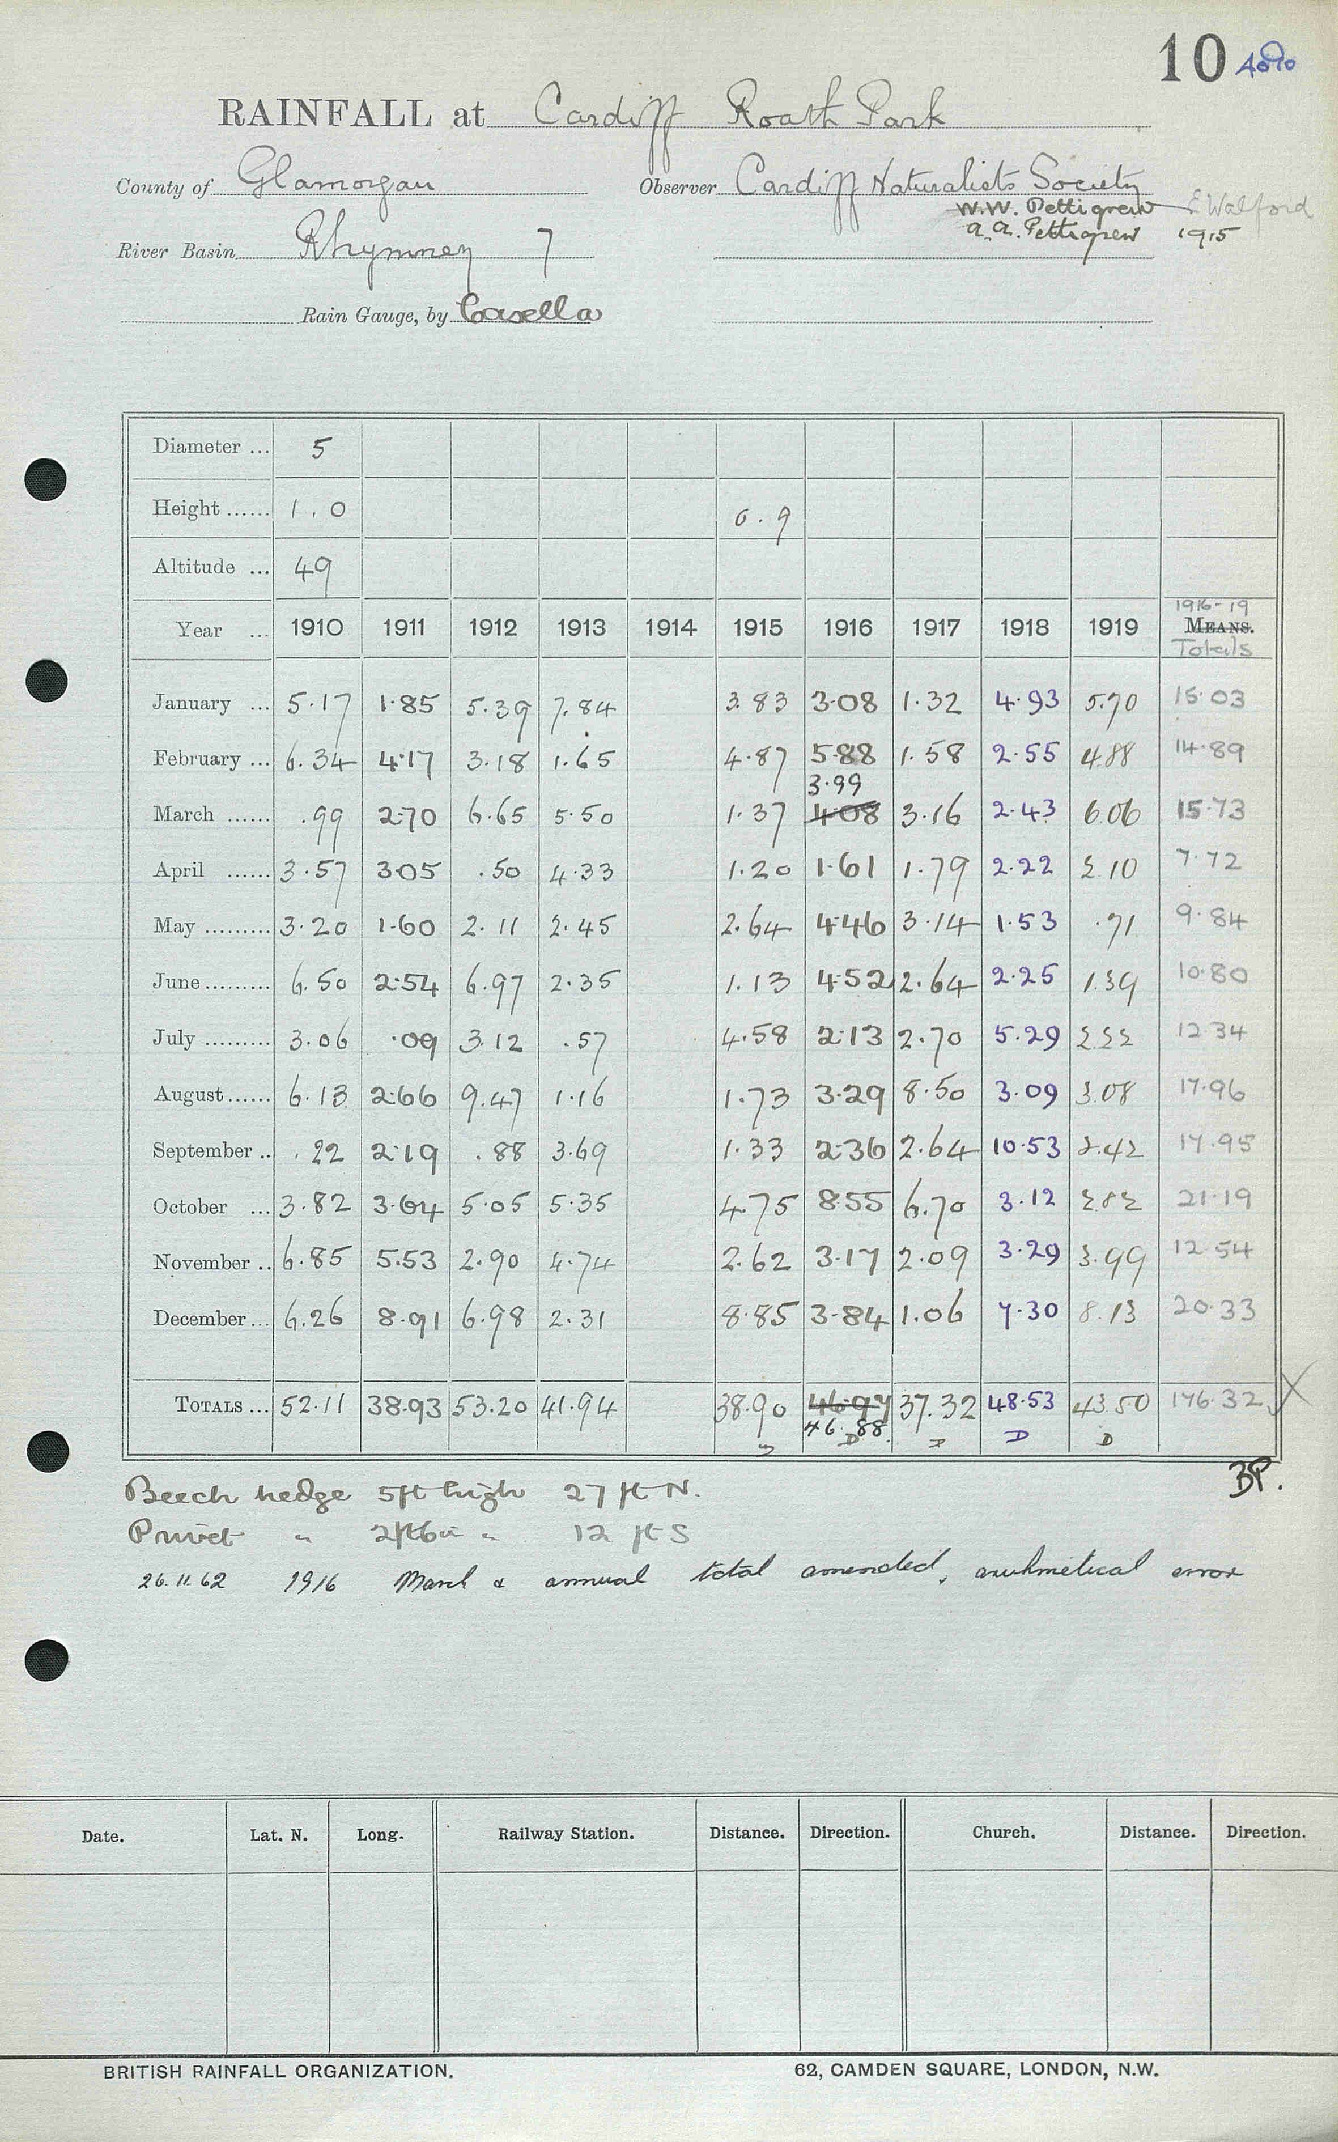 10
RAINFALL at Cardiff Roath Park
County of Glamorgan Observer Cardiff Naturalists Society
W.W. Pettigrew E Walford
A. A. Pettigrew 1915
River Basin Rhymney 7
Rain Gauge, by Casella
Diameter ... 5
Height ...... 1.0 0.9
Altitude ... 49
1916-19
Year ... 1910 1911 1912 1913 1914 1915 1916 1917 1918 1919 MEANS.
Totals
January ... 5.17 1.85 5.39 7.84 3.83 3.08 1.32 4.93 5.70 15.03
February ... 6.34 4.17 3.18 1.65 4.87 5.88 1.58 2.55 4.88 14.89
3.99
March ...... .99 2.70 6.65 5.50 1.37 4.08 3.16 2.43 6.06 15.73
April ...... 3.57 3.05 .50 4.33 1.20 1.61 1.79 2.22 2.10 7.72
May ......... 3.20 1.60 2.11 2.45 2.64 4.46 3.14 1.53 .71 9.84
June ......... 6.50 2.54 6.97 2.35 1.13 4.52 2.64 2.25 1.39 10.80
July ......... 3.06 .09 3.12 .57 4.58 2.13 2.70 5.29 2.22 12.34
August ...... 6.13 2.66 9.47 1.16 1.73 3.29 8.50 3.09 3.08 17.96
September .. .22 2.19 .88 3.69 1.33 2.36 2.64 10.53 2.42 17.95
October ... 3.82 3.64 5.05 5.35 4.75 8.55 6.70 3.12 2.82 21.19
November .. 6.85 5.53 2.90 4.74 2.62 3.17 2.09 3.29 3.99 12.54
December ... 6.26 8.91 6.98 2.31 8.85 3.84 1.06 7.30 8.13 20.33
TOTALS ... 52.11 38.93 53.20 41.94 38.90 46.97 37.32 48.53 43.50 176.32
46.88
D D D D
BP.
Beech hedge 5ft high 27 ft N.
Privet " 2ft6in " 12 ft S
26.11.62 1916 March & annual total amended, arithmetical error
Date. Lat. N. Long. Railway Station. Distance. Direction. Church. Distance. Direction.
BRITISH RAINFALL ORGANIZATION. 62, CAMDEN SQUARE, LONDON, N.W.